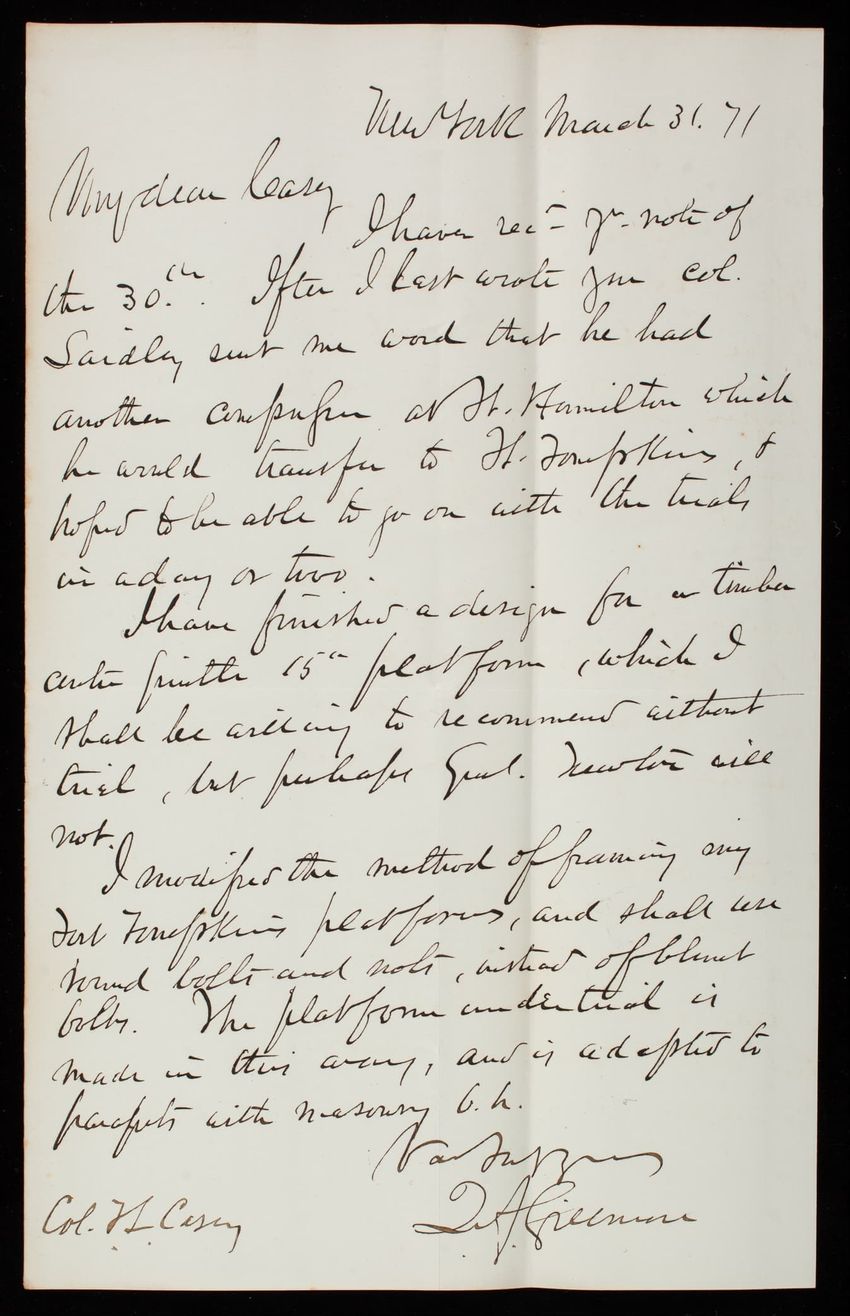 New York March 31. 71
My dear Casey
I have recd yr. note of
the 30.th. After I last wrote you Col.
Laidley sent me word that he had
another at Ft. Hamilton which
he would transfer to Ft. Tompkins, &
hoped to be able to go on with the trials
in a day or two.
I have finished a design for a timber
centre pintle 15in platform, which I
shall be willing to recommend without
trial, but perhaps Genl. Newton will
not.
I modified the method of framing my
Fort Tompkins platforms, and shall use
round bolts and nuts, instead of blunt
bolts. The platform under trial is
made in this way, and is adapted to
parapets with masonry b. h.
Q A Gillmore
Col. T L Casey